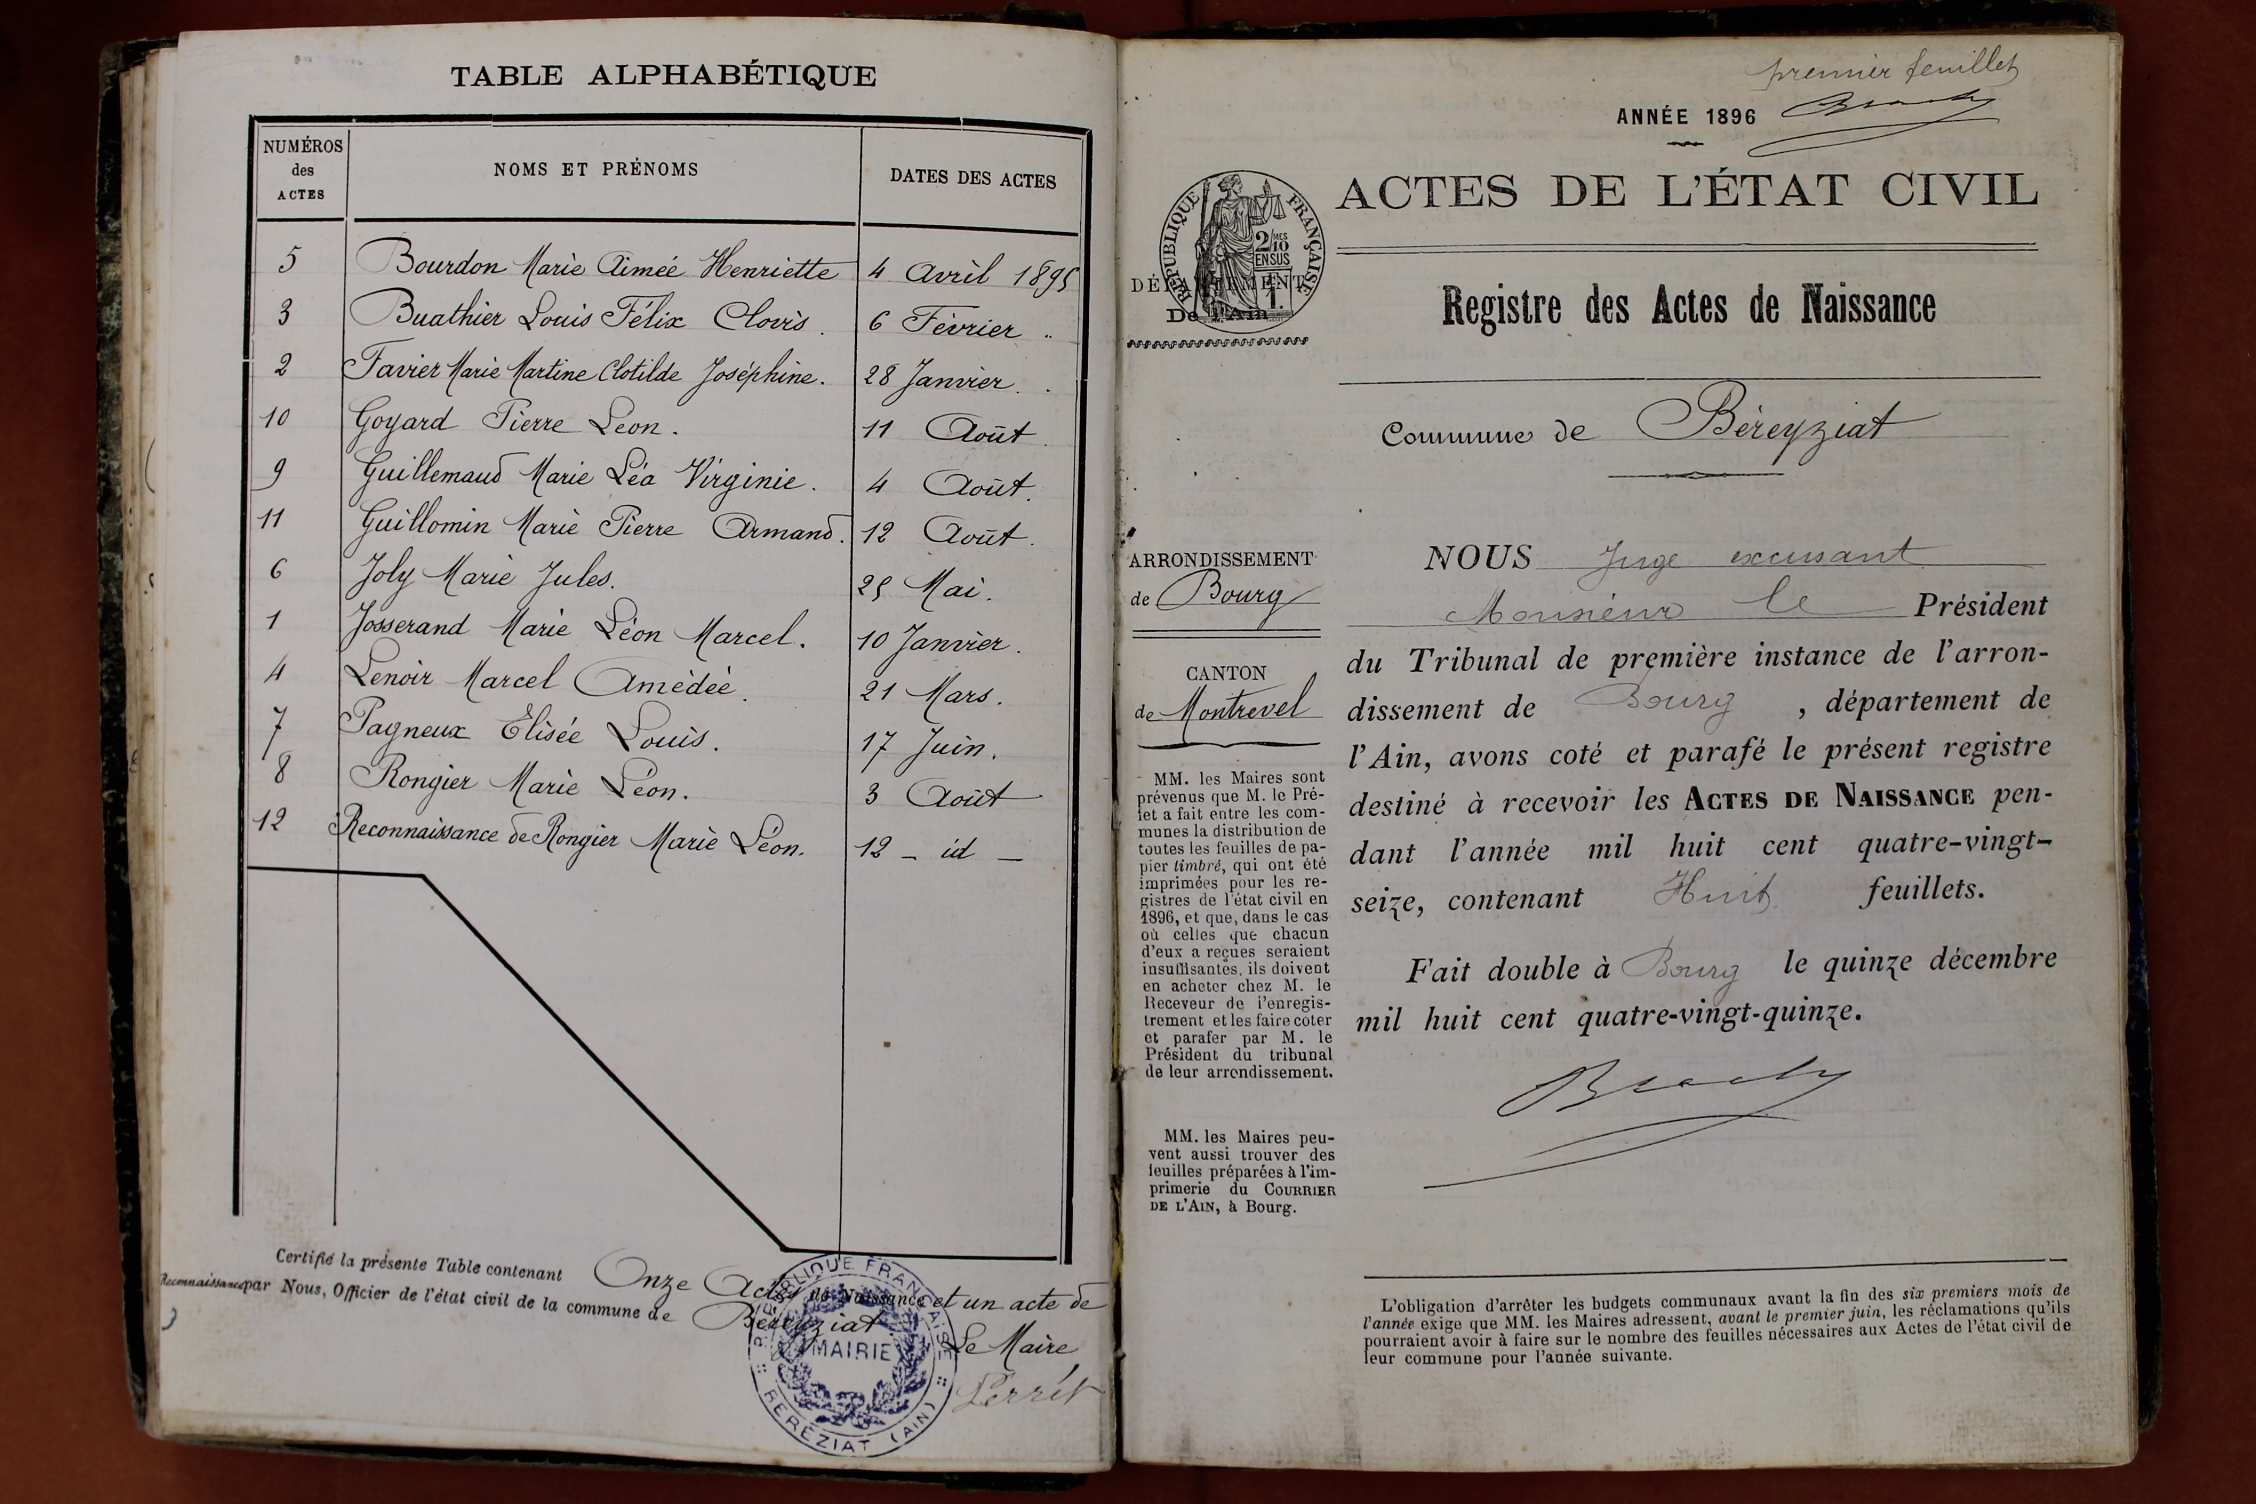 TABLE ALPHABÉTIQUE
NUMÉROS des ACTES NOMS ET PRÉNOMS DATES DES ACTES
5 Bourdon Marie Aimée Henriette 4 Avril 1895
3 Buathier Louis Félix Clovis. 6 Février "
2 Favier Marie Martine Clotilde Joséphine. 28 Janvier.
10 Goyard Pierre Léon. 11 Août.
9 Guillemaud Marie Léa Virginie. 4 Août.
11 Guillomin Marie Pierre Armand. 12 Août.
6 Joly Marie Jules. 25 Mai.
1 Josserand Marie Léon Marcel. 10 Janvier.
4 Lenoir Marcel Amédée. 21 Mars.
7 Pagneux Elisée Louis. 17 Juin.
8 Rongier Marie Léon. 3 Août
12 Reconnaissance de Rongier Marie Léon. 12 - id -
Certifié la présente Table contenant Onze Actes de Naissance et un acte de
Reconnaissance par Nous, Officier de l'état civil de la commune de Béreyziat
Le Maire
Perret
RÉPUBLIQUE FRANÇAISE
MAIRIE
BÉRÉZIAT (AIN)
premier feuillet
ANNÉE 1896
ACTES DE L'ÉTAT CIVIL
RÉPUBLIQUE FRANÇAISE
2/10 MES
EN SUS
DÉPARTEMENT
De l'Ain
Registre des Actes de Naissance
Commune de Béreyziat
ARRONDISSEMENT
de Bourg
CANTON
de Montrevel
MM. les Maires sont
prévenus que M. le Pré-
fet a fait entre les com-
munes la distribution de
toutes les feuilles de pa-
pier timbré, qui ont été
imprimées pour les re-
gistres de l'état civil en
1896, et que, dans le cas
où celles que chacun
d'eux a reçues seraient
insuffisantes, ils doivent
en acheter chez M. le
Receveur de l'enregis-
trement et les faire coter
et parafer par M. le
Président du tribunal
de leur arrondissement.
MM. les Maires peu-
vent aussi trouver des
feuilles préparées à l'im-
primerie du COURRIER
DE L'AIN, à Bourg.
NOUS Juge excusant
Monsieur le Président
du Tribunal de première instance de l'arron-
dissement de Bourg, département de
l'Ain, avons coté et parafé le présent registre
destiné à recevoir les ACTES DE NAISSANCE pen-
dant l'année mil huit cent quatre-vingt-
seize, contenant Huit feuillets.
Fait double à Bourg le quinze décembre
mil huit cent quatre-vingt-quinze.
L'obligation d'arrêter les budgets communaux avant la fin des six premiers mois de
l'année exige que MM. les Maires adressent, avant le premier juin, les réclamations qu'ils
pourraient avoir à faire sur le nombre des feuilles nécessaires aux Actes de l'état civil de
leur commune pour l'année suivante.